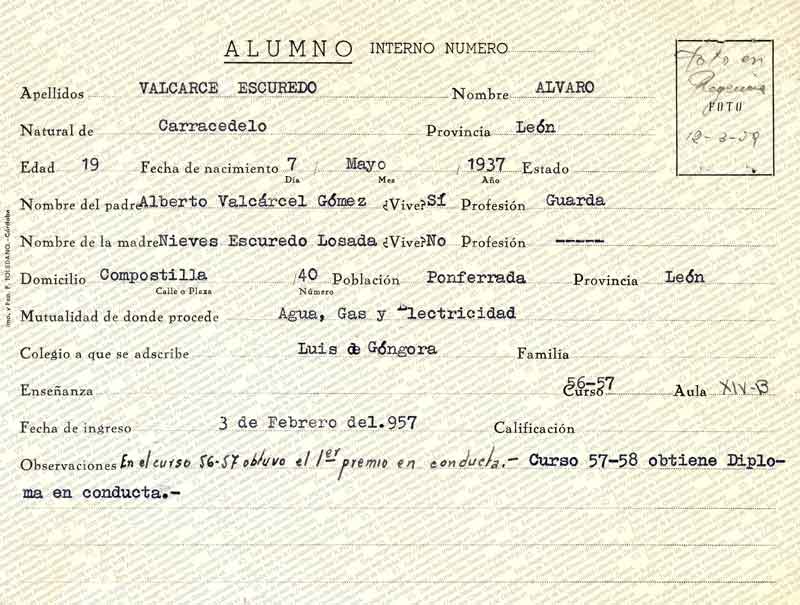 ALUMNO INTERNO NUMERO
Apellidos VALCARCE ESCUREDO Nombre ALVARO
Foto en
FOTO
12-3-59
Natural de Carracedelo Provincia León
Edad 19 Fecha de nacimiento 7 / Mayo / 1937 Estado
Día Mes Año
Nombre del padre Alberto Valcárcel Gómez ¿Vive? Sí Profesión Guarda
Nombre de la madre Nieves Escuredo Losada ¿Vive? No Profesión -----
Domicilio Compostilla /40 Población Ponferrada Provincia León
Calle o Plaza Número
Mutualidad de donde procede Agua, Gas y Electricidad
Colegio a que se adscribe Luis de Góngora Familia
Enseñanza Curso 56-57 Aula XIV-B
Fecha de ingreso 3 de Febrero del.957 Calificación
Observaciones En el curso 56-57 obtuvo el 1er premio en conducta.- Curso 57-58 obtiene Diplo-
ma en conducta.-
Imp. y Pap. F. TOLEDANO.-Córdoba